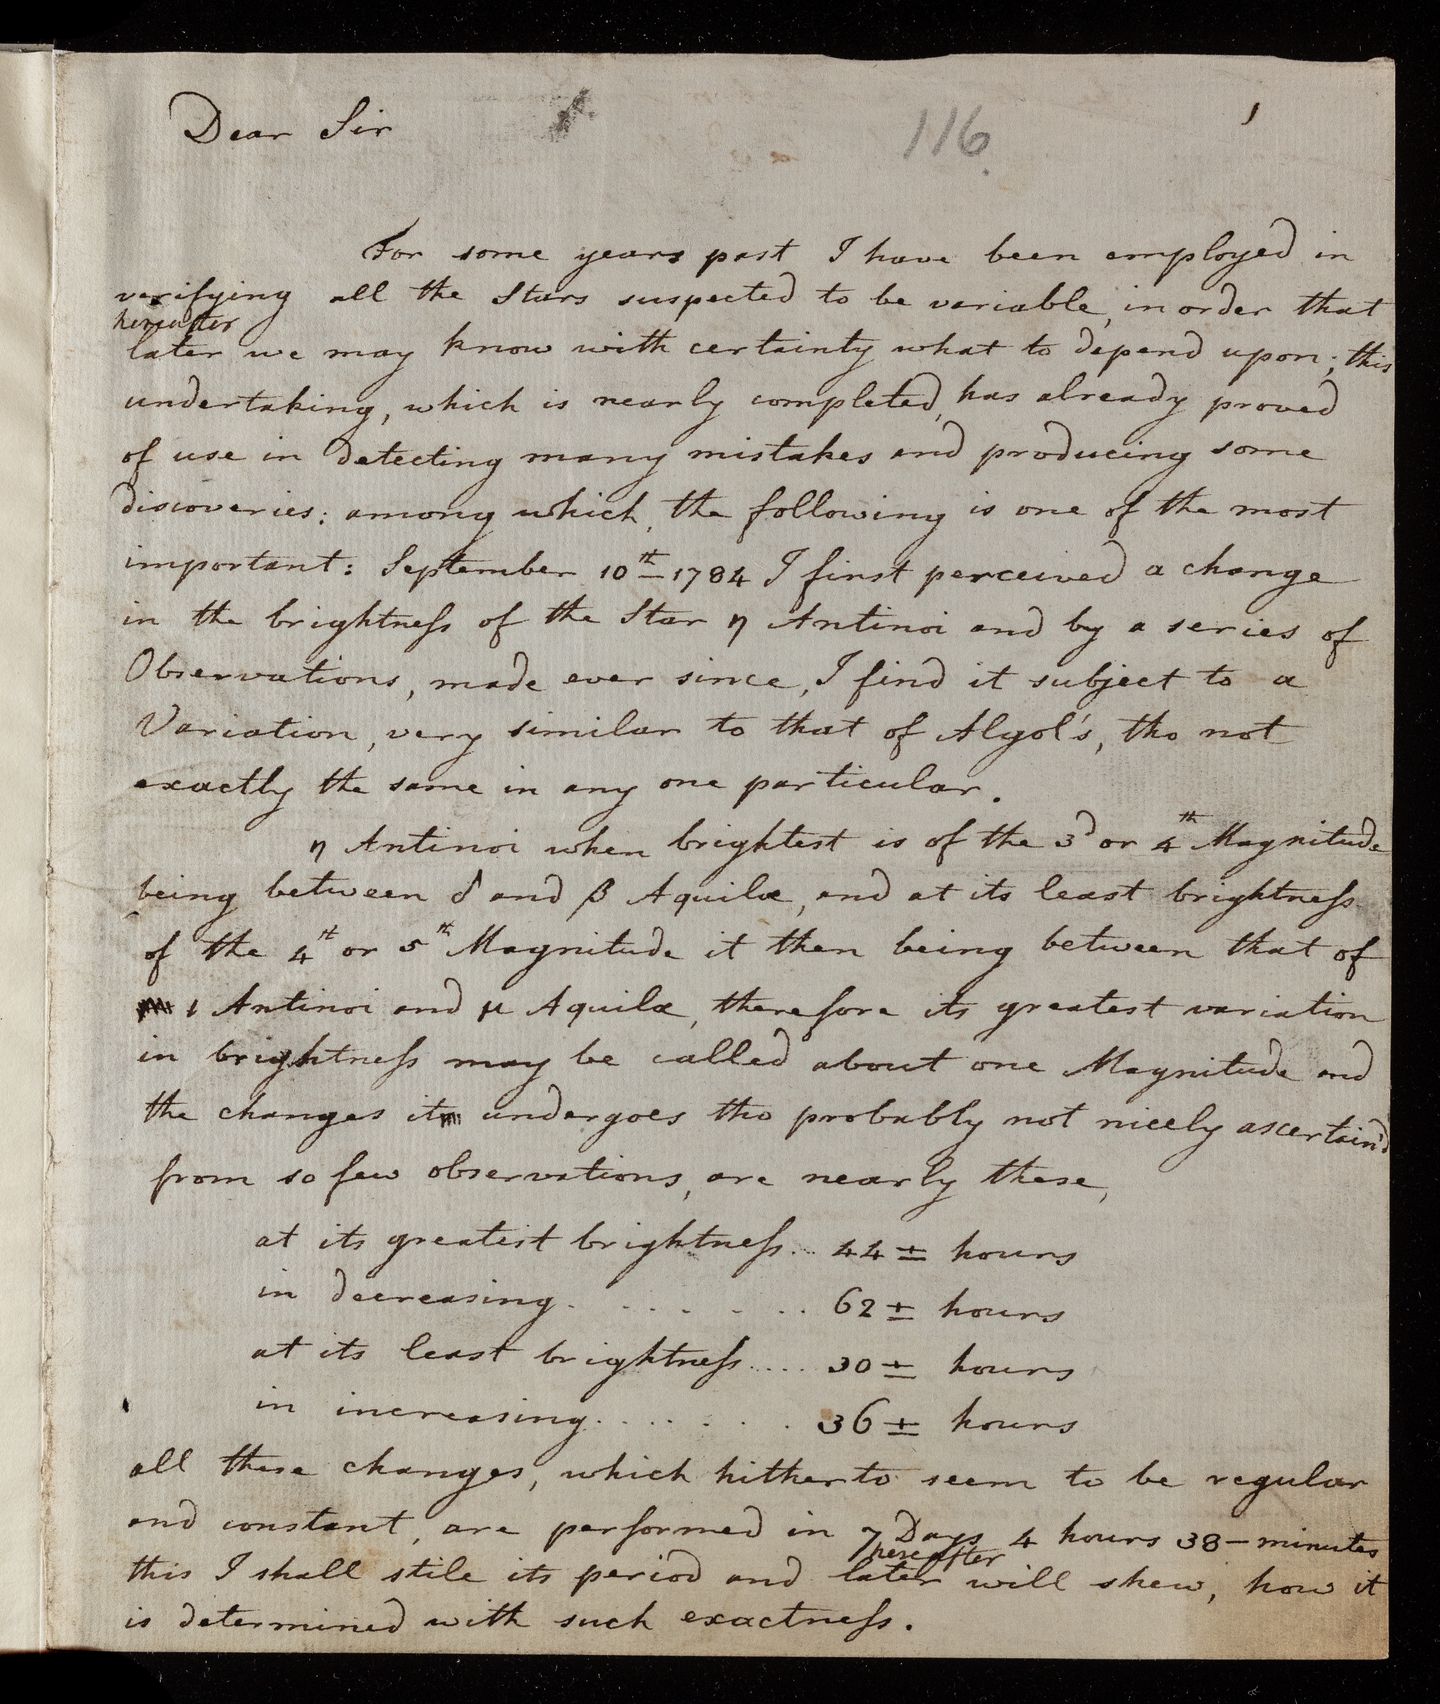 Dear Sir
116.
1
For some years past I have been employed in
verifying all the Stars suspected to be variable, in order that
hereafter
later we may know with certainty what to depend upon; this
undertaking, which is nearly completed, has already proved
of use in detecting many mistakes and producing some
discoveries: among which, the following is one of the most
important: September 10th 1784 I first perceived a change
in the brightness of the Star η Antinoi and by a series of
Observations, made ever since, I find it subject to a
Variation, very similar to that of Algol's, tho not
exactly the same in any one particular.
η Antinoi when brightest is of the 3d or 4th Magnitude
being between δ and β Aquilæ, and at its least brightness
of the 4th or 5th Magnitude it then being between that of
ι Antinoi and μ Aquilæ, therefore its greatest variation
in brightness may be called about one Magnitude and
the changes it undergoes tho probably not nicely ascertain'd
from so few observations, are nearly these,
at its greatest brightness... 44 ± hours
in decreasing. . . . . . . . 62 ± hours
at its least brightness.... 30 ± hours
in increasing. . . . . . . 36 ± hours
all these changes, which hitherto seem to be regular
and constant, are performed in 7 Days 4 hours 38 - minutes
hereafter
this I shall stile its period and later will shew, how it
is determined with such exactness.